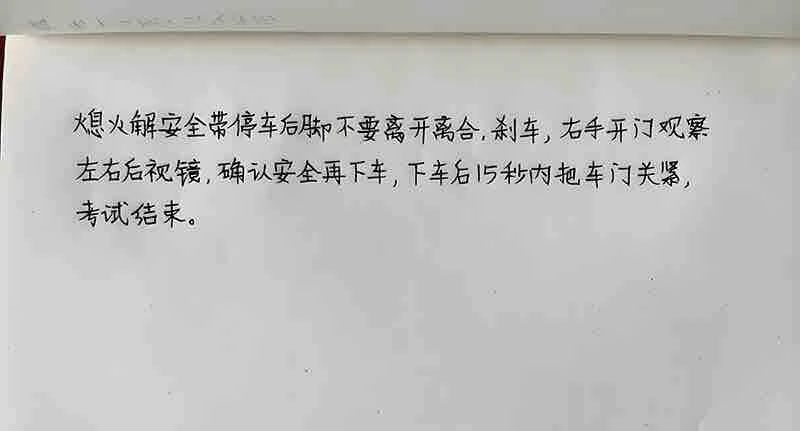 熄火解安全带停车后脚不要离开离合.刹车,右手开门观察
左右后视镜,确认安全再下车,下车后15秒内把车门关紧,
考试结束。